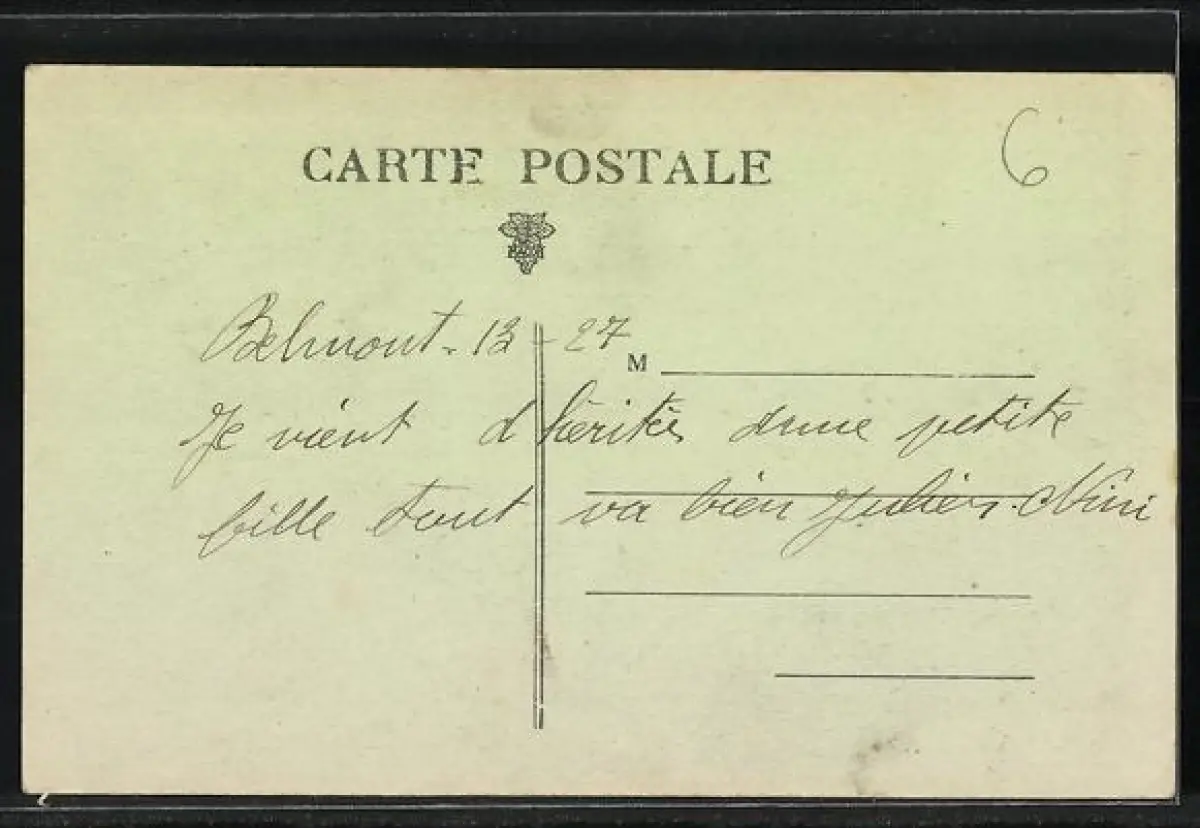 CARTE POSTALE
6
Belmont - 13 - 27
M
Je vient d'héritér dune petite
fille tout va bien Nini